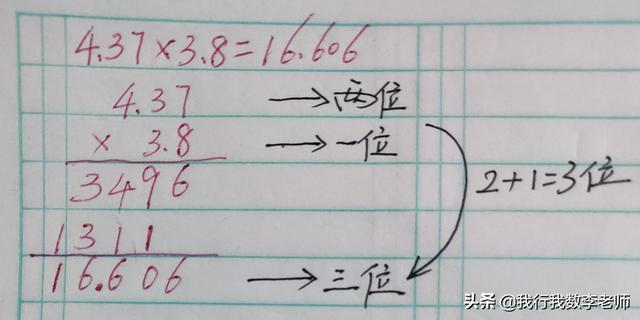 4.37×3.8=16.606
4.37 → 两位
× 3.8 → 一位
3496
2+1=3位
1311
16.606 → 三位
头条 @我行我数李老师